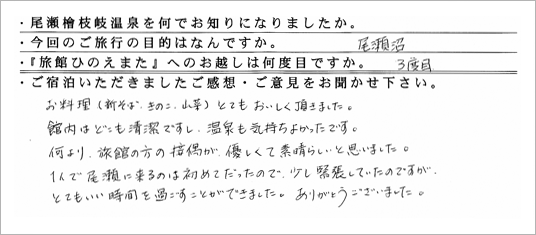 ・尾瀬檜枝岐温泉を何でお知りになりましたか。
・今回のご旅行の目的はなんですか。 尾瀬沼
・『旅館ひのえまた』へのお越しは何度目ですか。 3度目
・ご宿泊いただきましたご感想・ご意見をお聞かせ下さい。
お料理(新そば、きのこ、山菜)とてもおいしく頂きました。
館内はどこも清潔ですし、温泉も気持ちよかったです。
何より、旅館の方の接偶が、優しくて素晴らしいと思いました。
1人で尾瀬に来るのは初めてだったので、少し緊張していたのですが、
とてもいい時間を過ごすことができました。ありがとうございました。